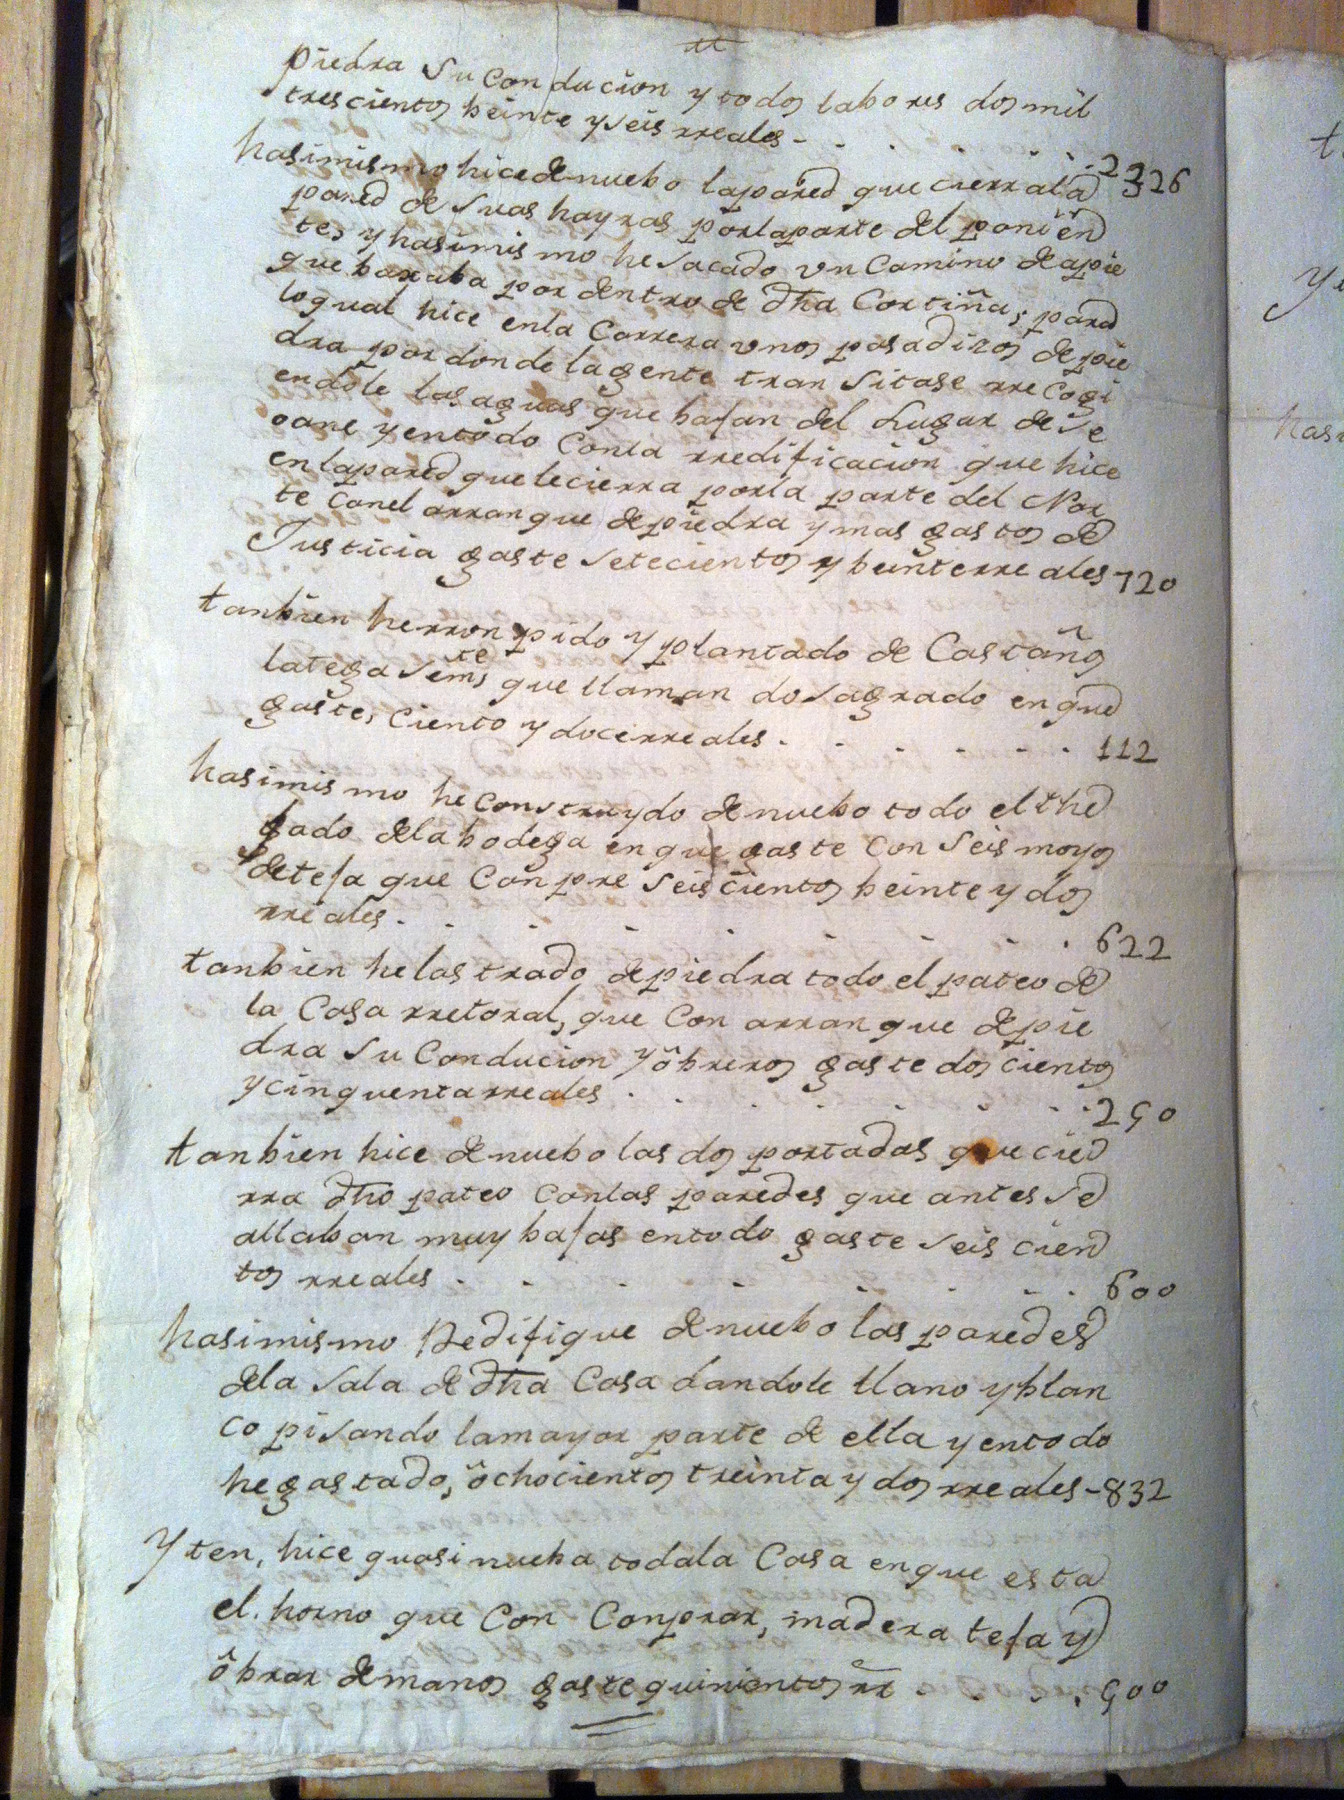 piedra su conducion y todos labores dos mil
trescientos beinte y seis rreales - . . . . . . 2326
hasimismo hice de nuebo la pared que cierra la
pared de suas hayras por la parte del ponien
te, y hasimismo he sacado un camino de a pie
que baxaba por dentro de dha Cortiña, para
lo qual hice en la Carrera unos pasadizos de pie
dra por donde la gente transitase rrecogi
endole las aguas que bajan del Lugar de Se
oane y en todo con la rredificacion que hice
en la pared que le cierra por la parte del Nor
te con el arranque de piedra y mas gastos de
Justicia gaste setecientos y beinte rreales - 720
tanbien he rronpido y plantado de Castaños
la tega semte que llaman do sagrado en que
gaste, ciento y doce rreales . . . . . . . 112
hasimismo he construydo de nuebo todo el the
jado de la bodega en que gaste con seis moyos
de teja que conpre seiscientos beinte y dos
rreales . . . . . . . . 622
tanbien he lastrado de piedra todo el pateo de
la Casa rretoral, que con arranque de pie
dra su conducion y obreros gaste dos cientos
y cinquenta rreales . . . . . . . 250
tanbien hice de nuebo las dos portadas que cie
rra dho pateo con las paredes que antes se
allaban muy bajas en todo gaste seis cien
tos rreales . . . . . . . . 600
hasimismo Redifique de nuebo las paredes
de la sala de dha Casa dandole llano y blan
co pisando la mayor parte de ella y en todo
he gastado, ochocientos treinta y dos rreales - 832
Yten, hice quasi nueba toda la Casa en que esta
el horno que con conprar, madera teja y
obrar de manos gaste quinientos rr . . . . 500
t
y
hasi